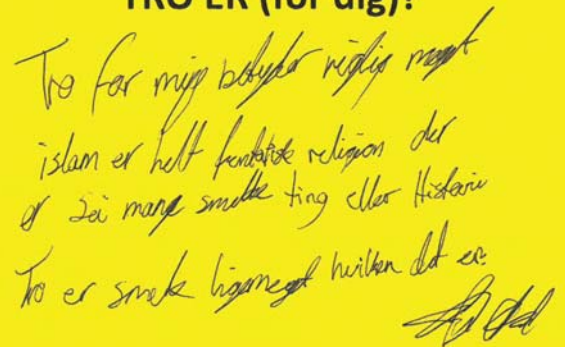 TRO ER (for dig)?
Tro for mig betyder rigtig meget
islam er helt fantatisk religion der
er sei mange smukke ting eller Historie
Tro er smuk ligemeget hvilken det er.